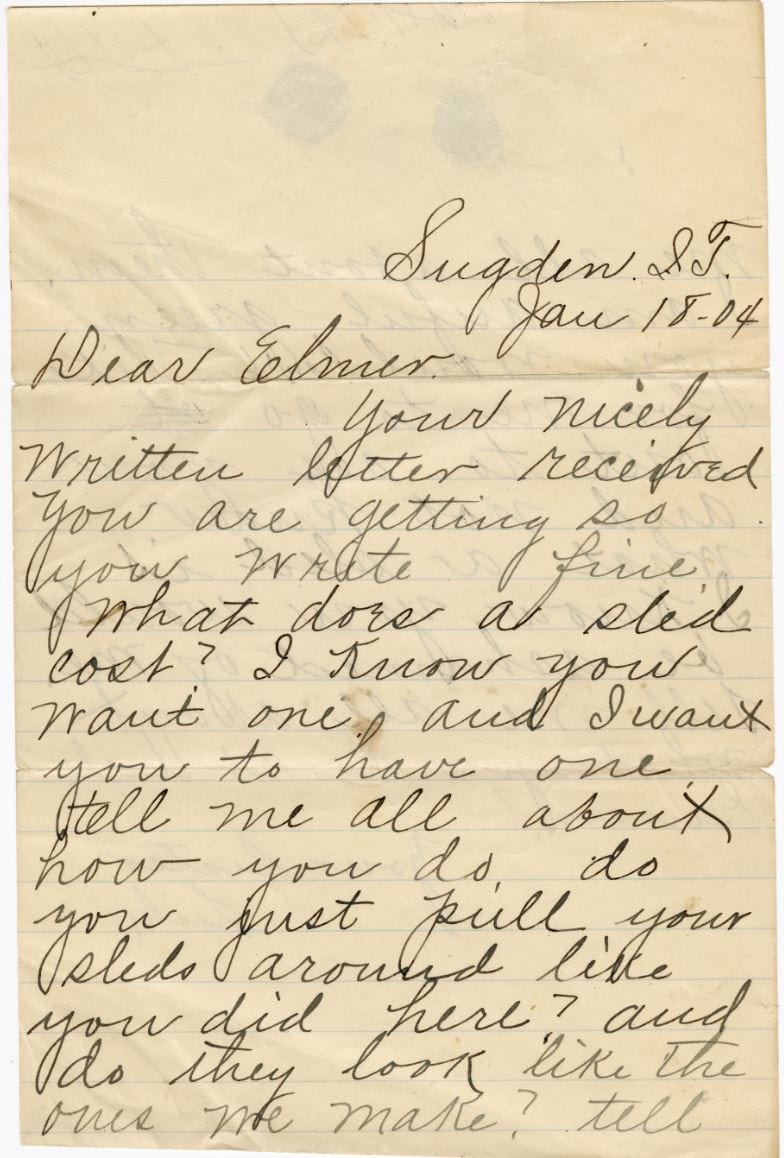 Sugden. I.T.
Jan 18-04
Dear Elmer.
Your nicely
written letter received
You are getting so
you write fine.
What does a sled
cost? I know you
want one, and I want
you to have one.
tell me all about
how you do. do
you just pull your
sleds around like
you did here? and
do they look like the
ones we make? tell